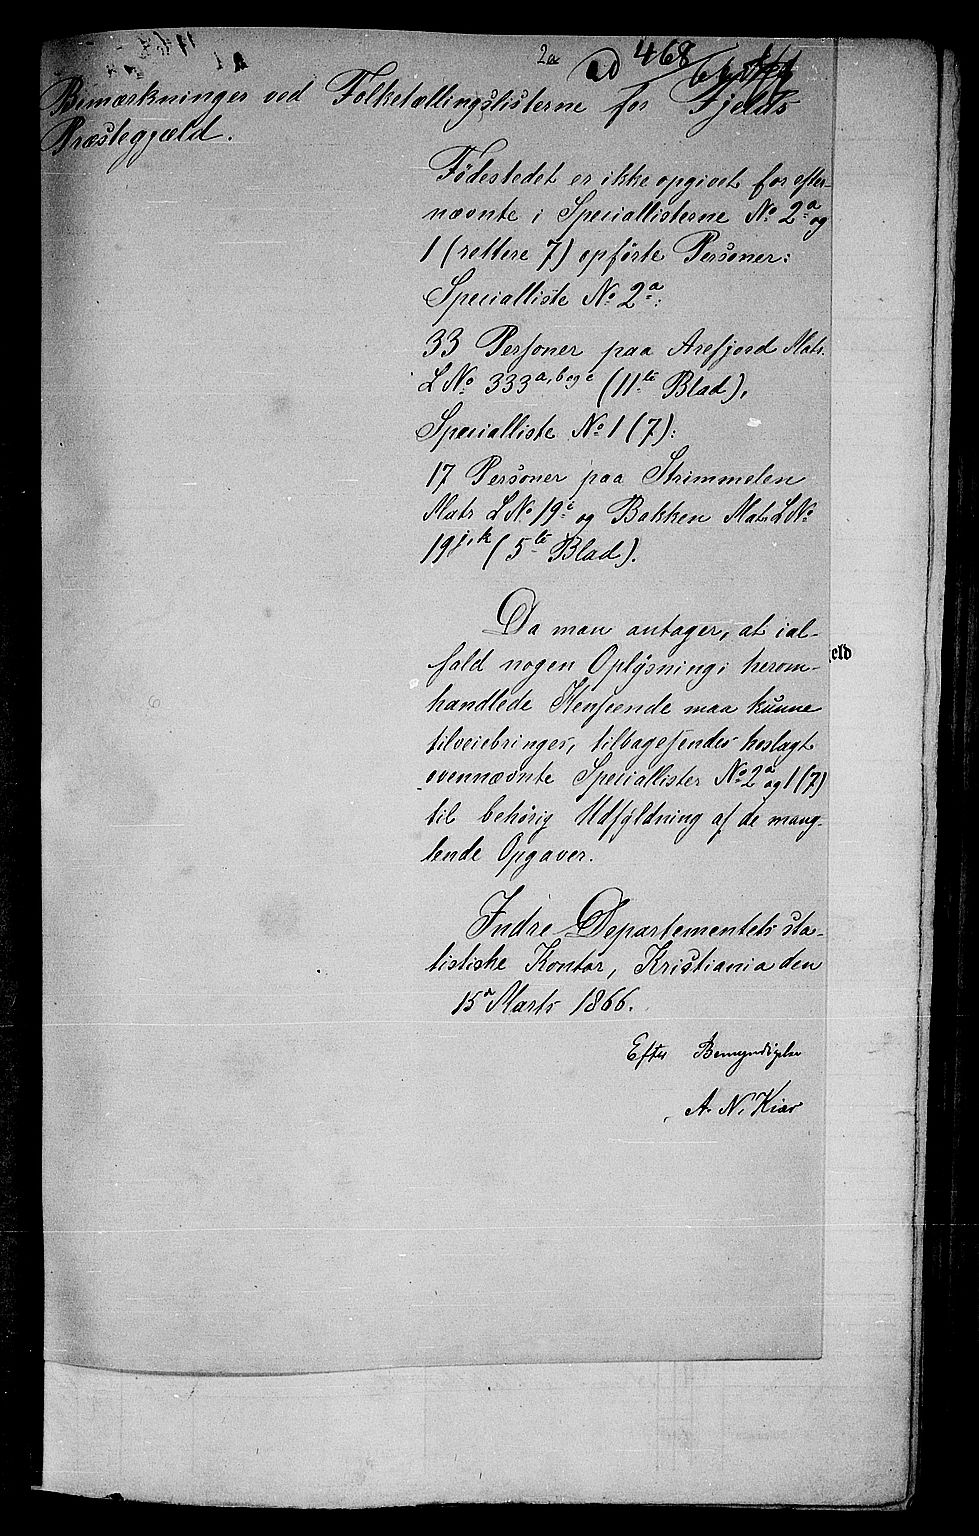 2a
ad 468
Bemærkninger ved Folketællingslisterne for Fjelds
Præstegjæld.
Fødestedet er ikke opgivet for efter-
nævnte i Speciallisterne No 2a og
1 (rettere 7) opførte Personer:
Specialliste No 2a:
33 Personer paa Arefjord Matr.
L No 333 a, b og c (11te Blad),
Specialliste No 1 (7):
17 Personer paa Strimmelen
Matr LNo 19i og Bakken Mat. LNo
19 j, k (5te Blad).
Da man antager, at ial-
fald nogen Oplysning i herom-
handlede Henseende maa kunne
tilveiebringes, tilbagesendes hoslagt
ovennævnte Speciallister No 2a og 1 (7)
til behørig Udfyldning af de mang-
lende Opgaver.
Indre Departementets sta-
tistiske Kontor, Kristiania den
15de Marts 1866.
Efter Bemyndigelse
A. N. Kiær
geld